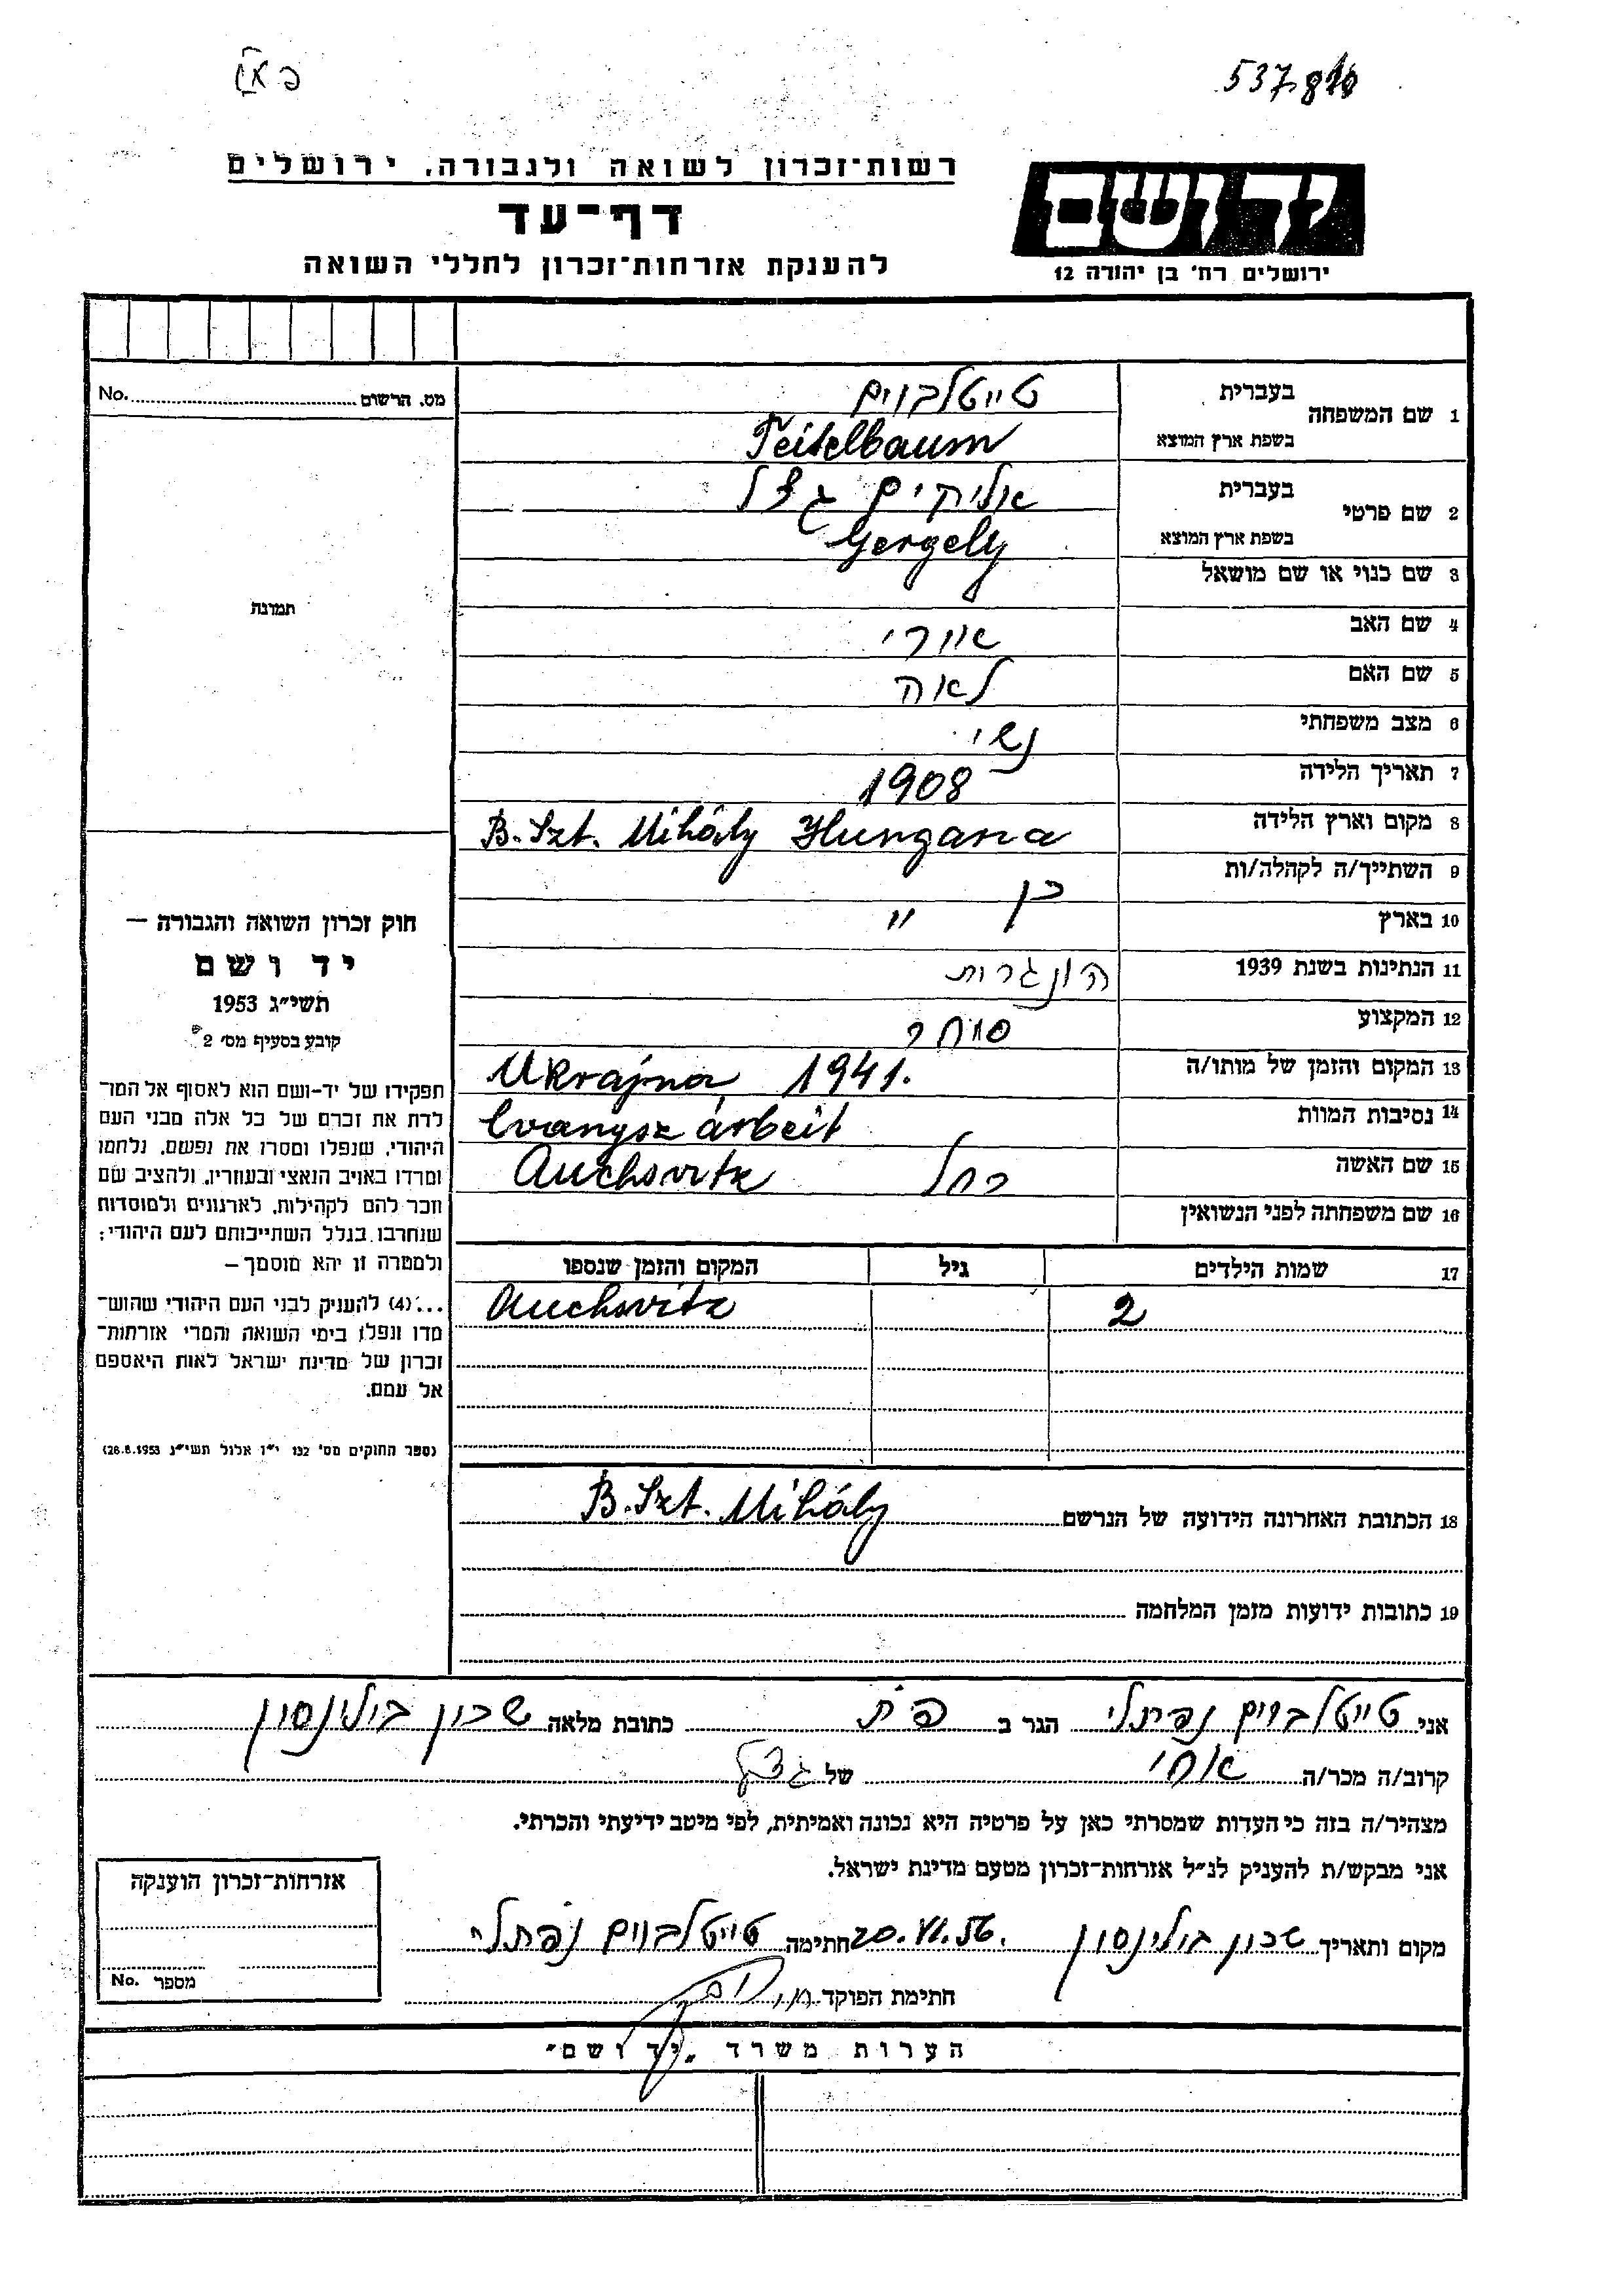 537.8
רשות־זכרון לשואה ולגבורה, ירושלים
דף־עד
להענקת אזרחות־זכרון לחללי השואה
יד ושם
ירושלים רח' בן יהודה 12
מס. הרשום No.
תמונה
1 שם המשפחה בעברית טייטלבוים
בשפת ארץ המוצא Teitelbaum
2 שם פרטי בעברית אליקים געצל
בשפת ארץ המוצא Gergely
3 שם כנוי או שם מושאל
4 שם האב אורי
5 שם האם לאה
6 מצב משפחתי נשוי
7 תאריך הלידה 1908
8 מקום וארץ הלידה B. Szt. Mihály Hungaria
9 השתייך/ה לקהלה/ות כן
10 בארץ "
11 הנתינות בשנת 1939 הונגרית
12 המקצוע סוחר
13 המקום והזמן של מותו/ה Ukrajna 1941.
14 נסיבות המוות arbeit
15 שם האשה רחל Auchsvitz
16 שם משפחתה לפני הנשואין
17 שמות הילדים גיל המקום והזמן שנספו
2 Auchsvitz
18 הכתובת האחרונה הידועה של הנרשם B. Szt. Mihály
19 כתובות ידועות מזמן המלחמה
חוק זכרון השואה והגבורה —
יד ושם
תשי"ג 1953
קובע בסעיף מס' 2
תפקידו של יד־ושם הוא לאסוף אל המו־
לדת את זכרם של כל אלה מבני העם
היהודי, שנפלו ומסרו את נפשם, נלחמו
ומרדו באויב הנאצי ובעוזריו, ולהציב שם
וזכר להם לקהילות, לארגונים ולמוסדות
שנחרבו בגלל השתייכותם לעם היהודי;
ולמטרה זו יהא מוסמך —
...(4) להעניק לבני העם היהודי שהוש־
מדו ונפלו בימי השואה והמרי אזרחות־
זכרון של מדינת ישראל לאות היאספם
אל עמם.
(ספר החוקים מס' 132 י"ז אלול תשי"ג 28.8.1953)
אני טייטלבוים נפתלי הגר ב פ"ת כתובת מלאה שכון בילינסון
קרוב/ה מכר/ה אחי של געצל
מצהיר/ה בזה כי העדות שמסרתי כאן על פרטיה היא נכונה ואמיתית, לפי מיטב ידיעתי והכרתי.
אני מבקש/ת להעניק לנ"ל אזרחות־זכרון מטעם מדינת ישראל.
מקום ותאריך שכון בילינסון 20.VI.56. חתימה טייטלבוים נפתלי
חתימת הפוקד
אזרחות־זכרון הוענקה
מספר No.
הערות משרד "יד ושם"